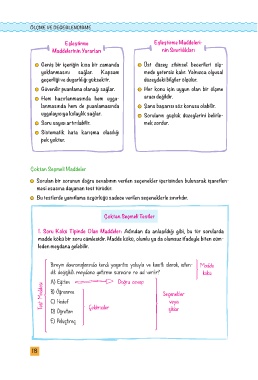 ÖLÇME VE DEĞERLENDİRME
Eşleştirme
Maddelerinin Yararları
Geniş bir içeriğin kısa bir zamanda
yoklanmasını sağlar. Kapsam
geçerliği ve duyarlılığı yüksektir.
Güvenilir puanlama olanağı sağlar.
Hem hazırlanmasında hem uygu-
lanmasında hem de puanlamasında
uygulayıcıya kolaylık sağlar.
Soru sayısı artırılabilir.
Sistematik hata karışma olasılığı
pek yoktur.
Eşleştirme Maddeleri-
nin Sınırlılıkları
Üst düzey zihinsel becerileri ölç-
mede yetersiz kalır. Yalnızca olgusal
düzeydeki bilgiler ölçülür.
Her konu için uygun olan bir ölçme
aracı değildir.
Şans başarısı söz konusu olabilir.
Soruların güçlük düzeylerini belirle-
mek zordur.
Çoktan Seçmeli Maddeler
Sorulan bir sorunun doğru cevabının verilen seçenekler içerisinden bulunarak işaretlen-
mesi esasına dayanan test türüdür.
Bu testlerde yanıtlama özgürlüğü sadece verilen seçeneklerle sınırlıdır.
Çoktan Seçmeli Testler
1. Soru Kökü Tipinde Olan Maddeler: Adından da anlaşıldığı gibi, bu tür sorularda
madde kökü bir soru cümlesidir. Madde kökü, olumlu ya da olumsuz ifadeyle biten cüm-
leden meydana gelebilir.
Bireyin davranışlarında kendi yaşantısı yoluyla ve kasıtlı olarak, isten-
dik değişiklik meydana getirme sürecine ne ad verilir?
Madde
kökü
Test Maddesi
A) Eğitim
Doğru cevap
B) Öğrenme
C) Hedef
D) Öğretim
E) Pekiştireç
Çeldiriciler
Seçenekler
veya
şıklar
118